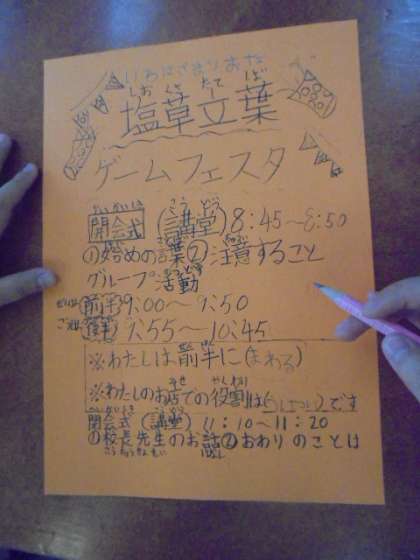 しお くさ たて ば
塩草立葉
ゲームフェスタ
かいかいしき こうどう
開会式 (講堂) 8:45〜8:50
①始めの言葉②注意すること
グループ活動
前半 9:00〜9:50
後半 9:55〜10:45
※わたしは前半に(まわる)
※わたしのお店での役割は( )です
閉会式 (講堂) 11:10〜11:20
①校長先生のお話②おわりのことば
こうちょうせんせい はなし